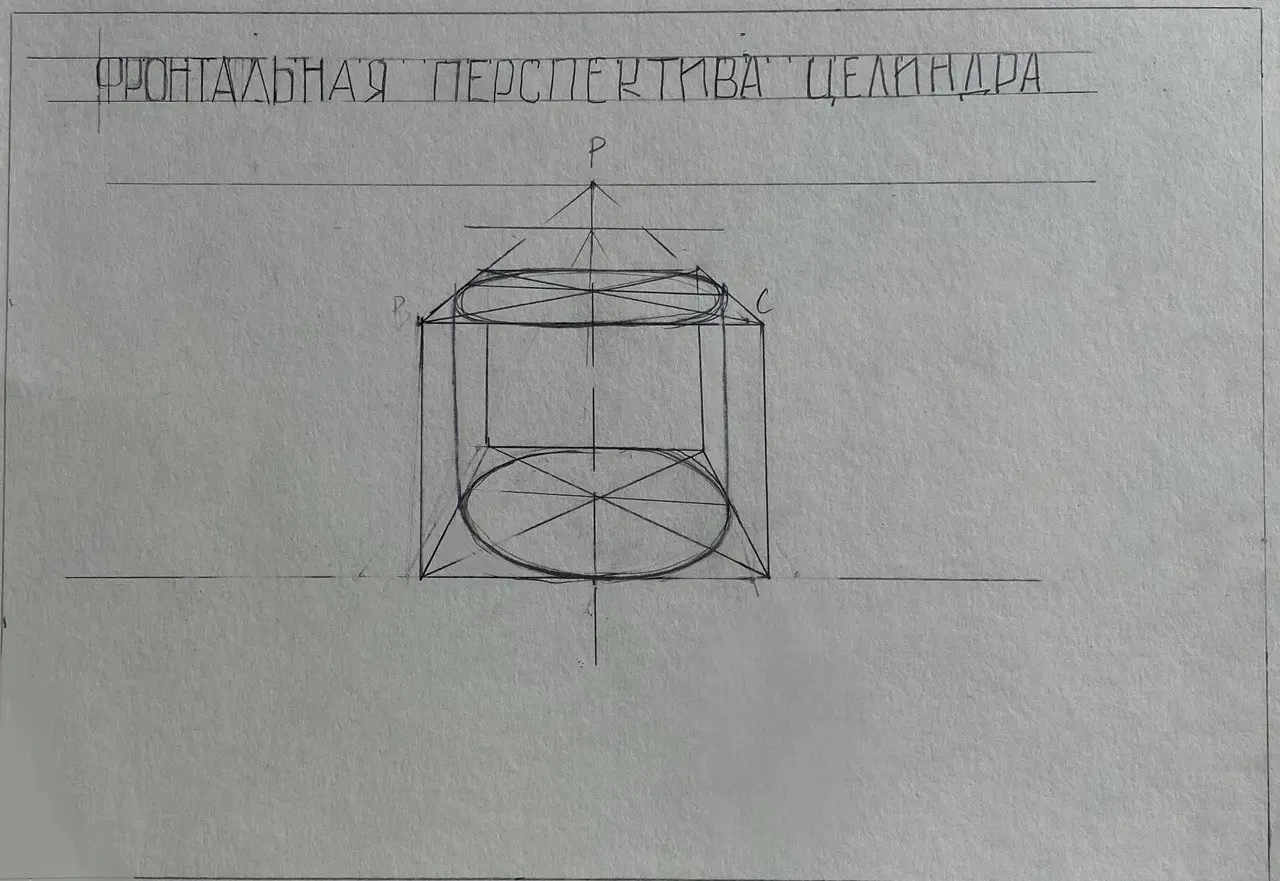 ФРОНТАЛЬНАЯ ПЕРСПЕКТИВА ЦЕЛИНДРА
P
B C